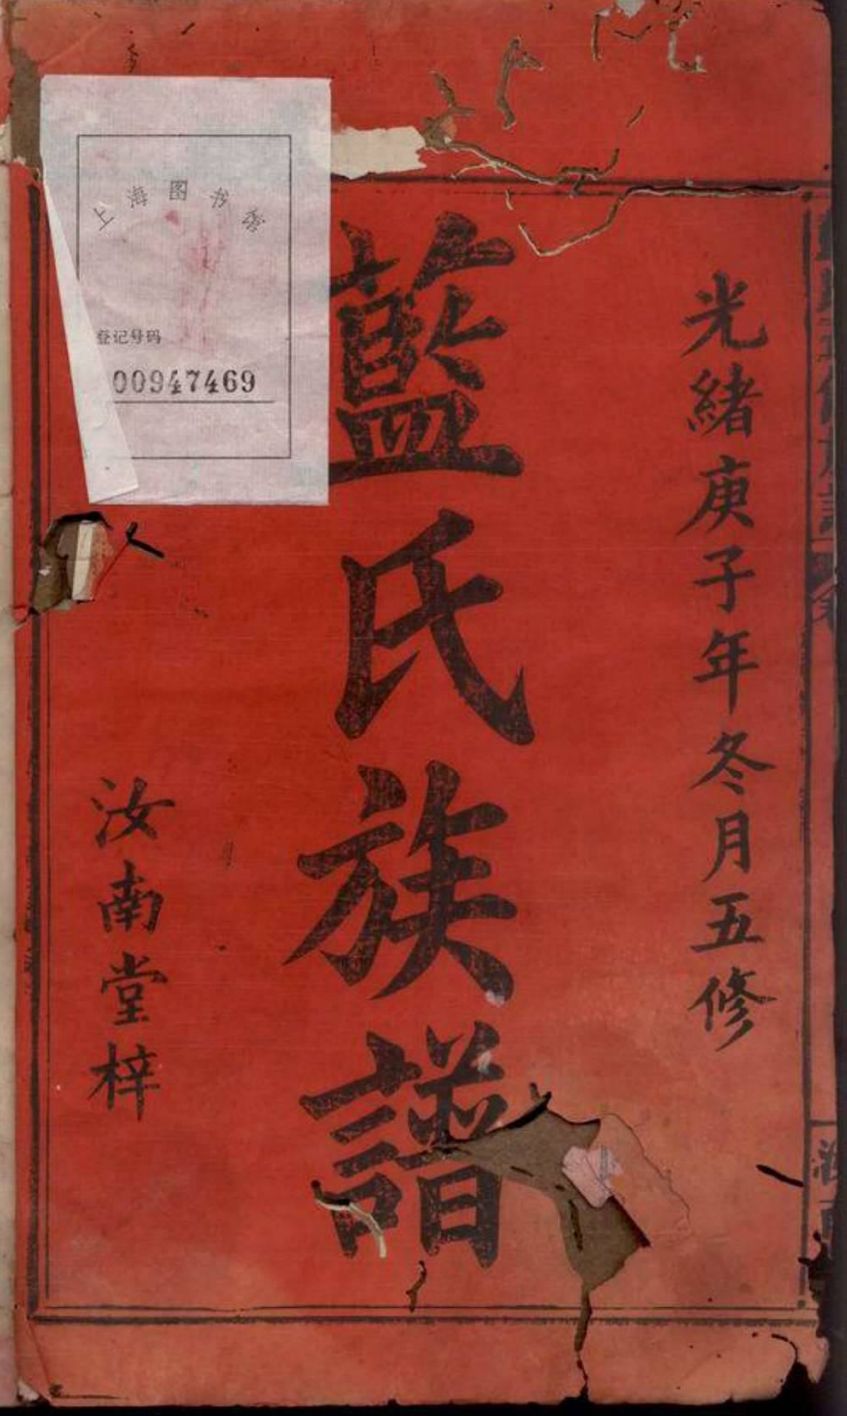 光緒庚子年冬月五修
藍氏族譜
汝南堂梓
上海图书舘
登记号码
00947469